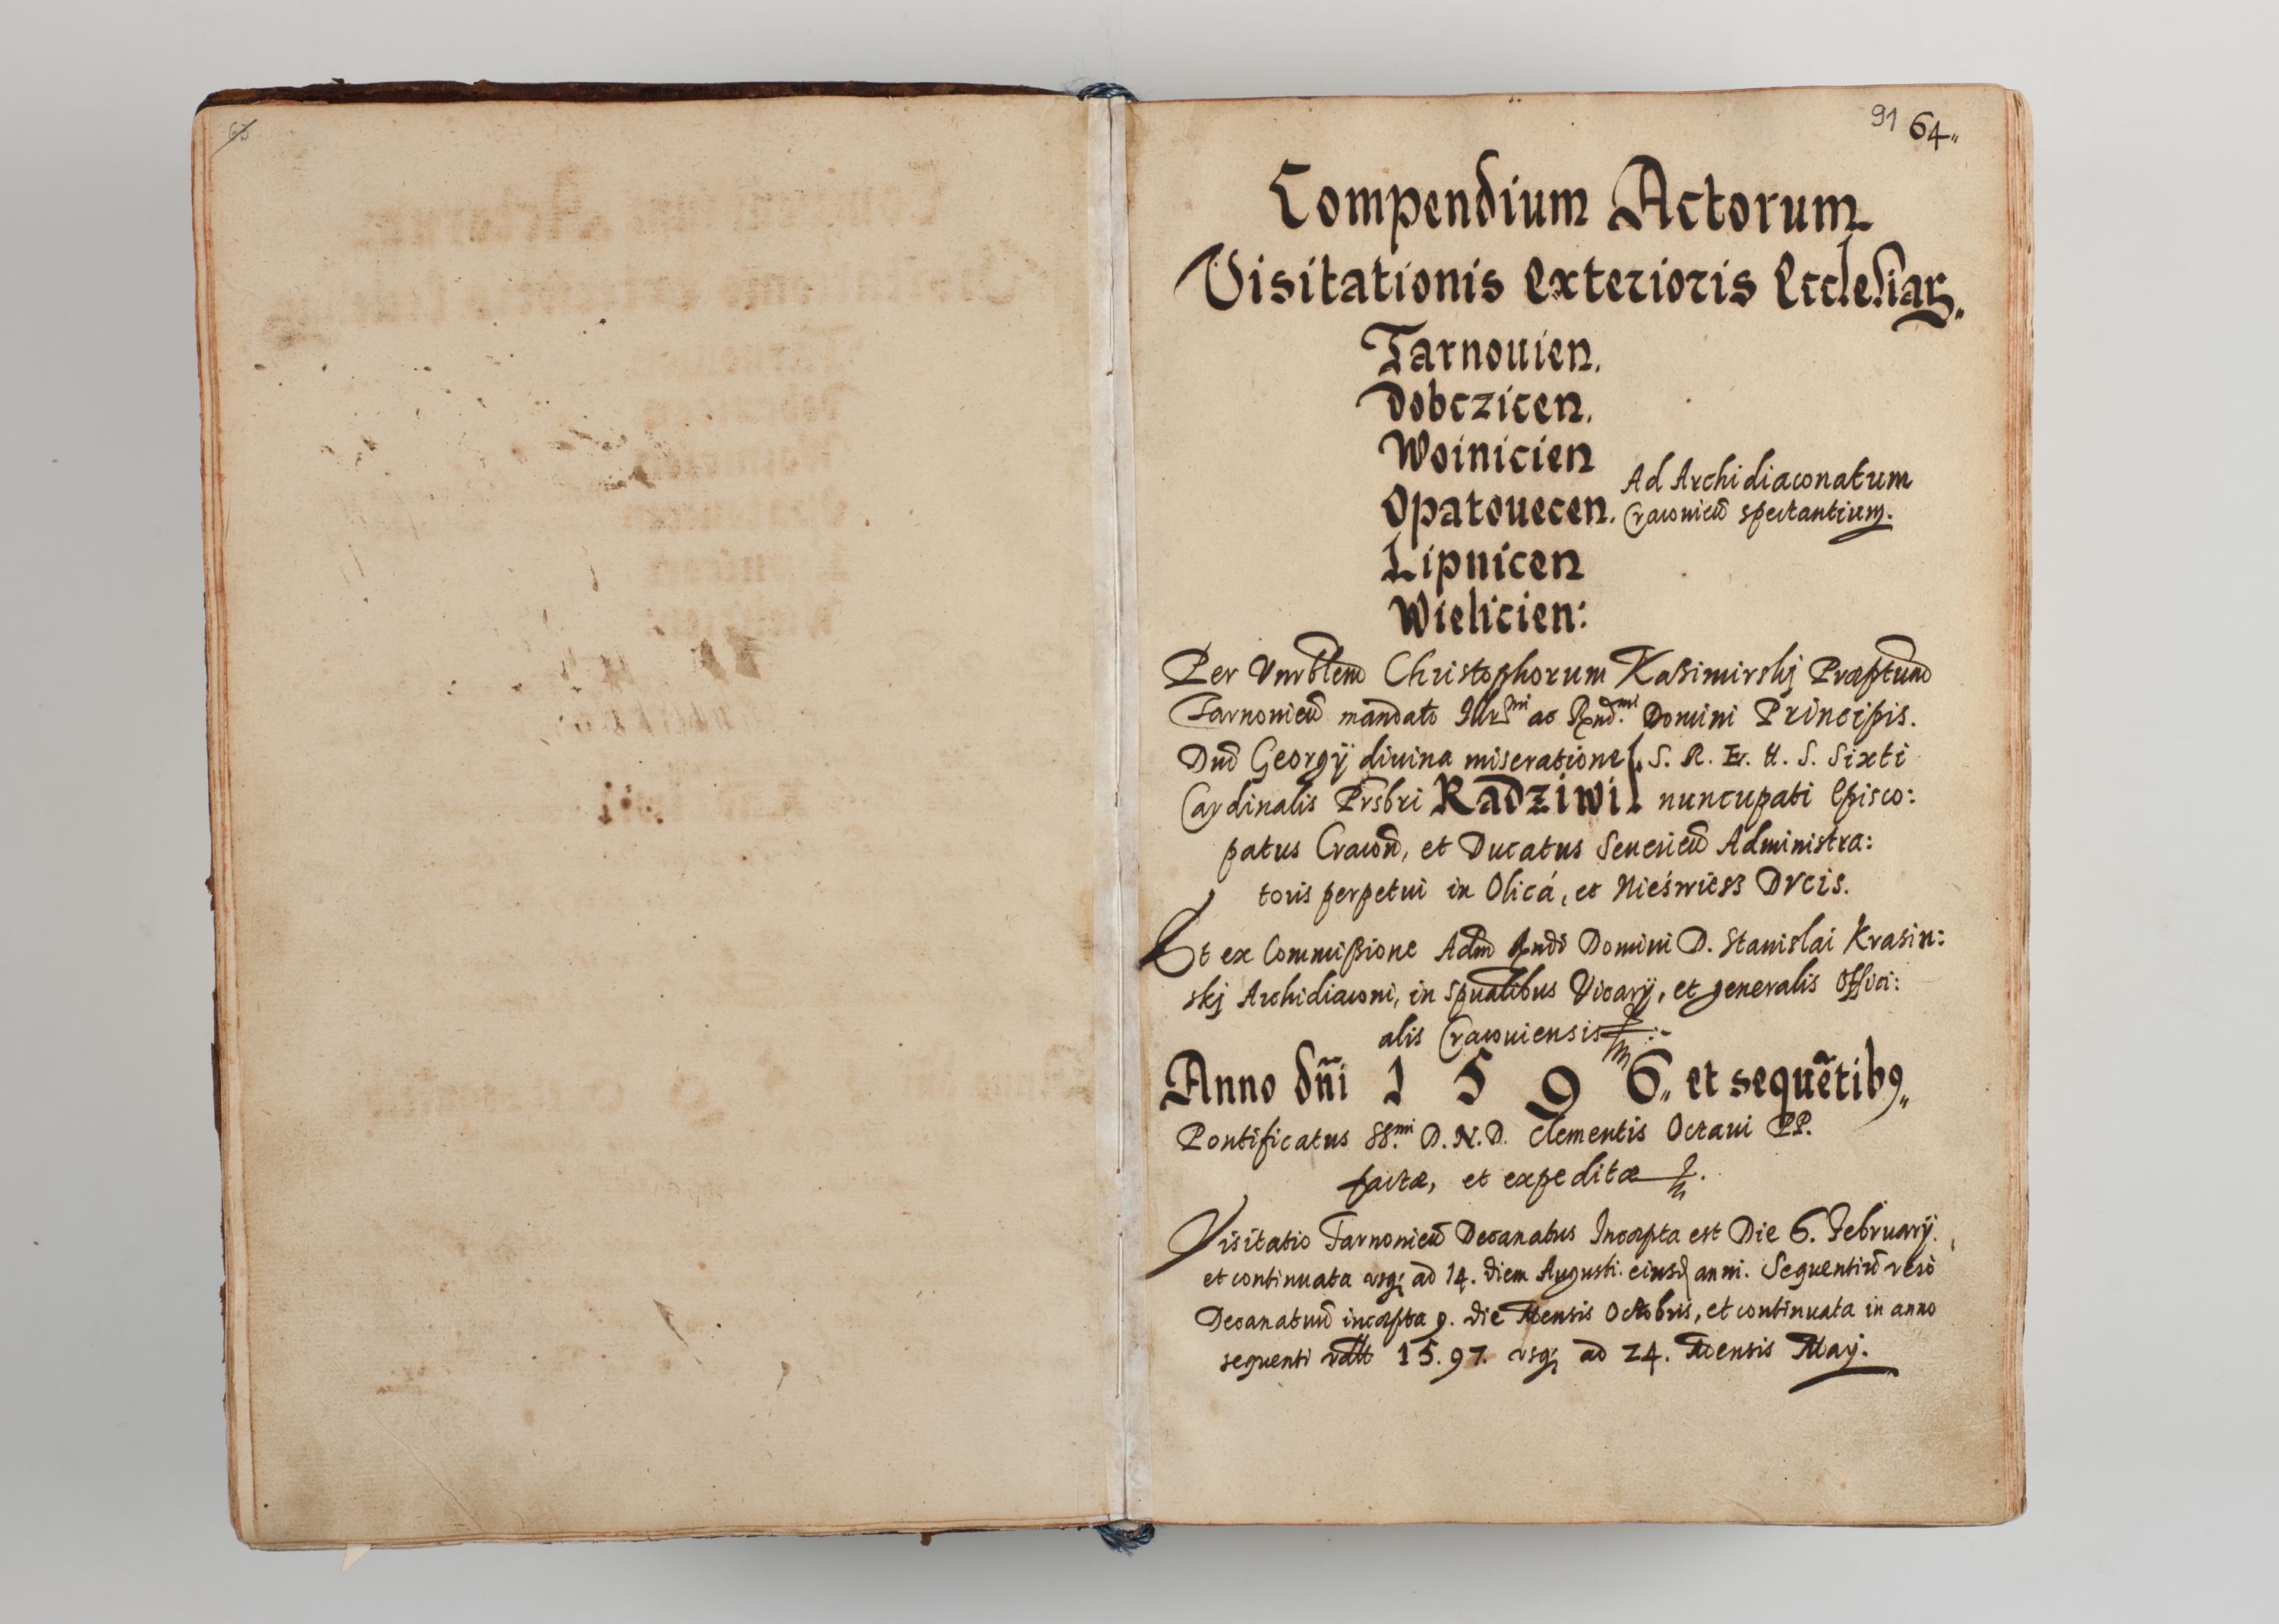 63
91 64.
Compendium Actorum
Visitationis Exterioris Ecclesiaꝝ.
Tarnouien.
Dobczicen.
Woinicien
Opatouecen.
Ad Archidiaconatum
Cracovien̄ spectantium.
Lipnicen
Wielicien:
Per Vnrblem̄ Christophorum Kaßimirskj Præptum̄
Tarnovien̄ mandato Illr̄mi ac Rnd̄.mi Domini Principis.
Dnī Georgÿ diuina miseratione S. R. E. tt. S. Sixti
Cardinalis Prsbri Radziwil nuncupati Episco:
patus Cracon̄, et Ducatus Seuerien̄ Administra:
toris perpetui in Olicá, et Nieświess Dvcis.
Et ex Commißione Adm̄ Rndī Domini D. Stanislai Krasin:
skj Archidiaconi, in spūalibus Vicarÿ, et generalis Offici:
alis Cracouiensis
Anno dñi 1596. et sequẽtibꝰ.
Pontificatus SS.mi D. N. D. Clementis Octaui PP.
factæ, et expeditæ
Visitatio Tarnovien̄ Decanatus Incæpta est Die 6. Februarÿ.
et continuata vsqȝ ad 14. diem Augusti. eiusd anni. Sequentiū verò
Decanatuū incæpta 9. die Mensis Octobris, et continuata in anno
sequenti vdlt 15.97. vsqȝ ad 24. Mensis Maÿ.